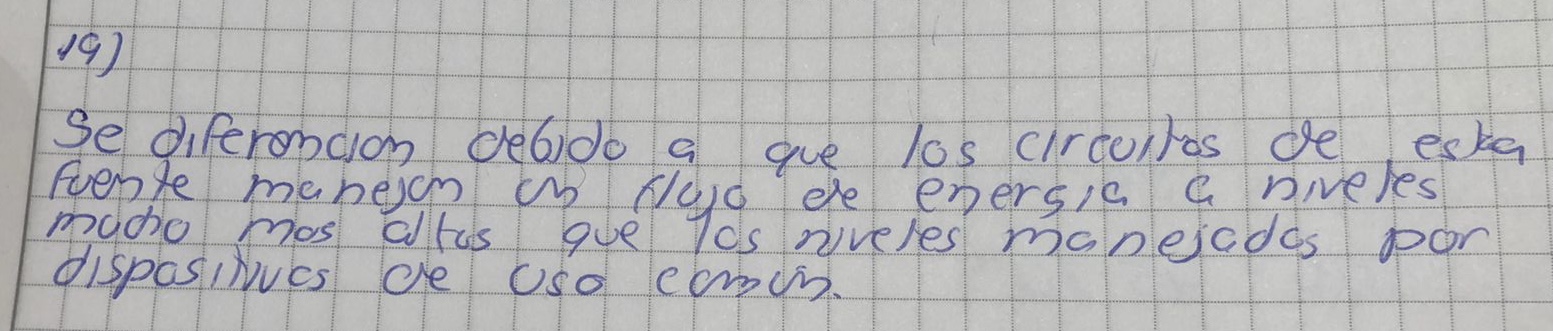 19)
Se diferencian debido a que los circuitos de esta
fuente manejan un flujo de energia a niveles
mucho mas altos que los niveles manejados por
dispositivos de uso comun.